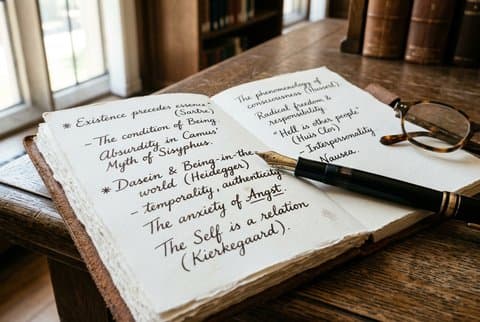 * Existence precedes essence"
(Sartre)
- The condition of Being
Absurdity in Camus'
Myth of Sisyphus.
* Dasein & Being-in-the-
world (Heidegger)
- temporality, authenticity
The anxiety of Angst.
The Self is a relation
(Kierkegaard).
The phenomenology of
consciousness (Husserl).
Radical freedom &
responsibility
"Hell is other people"
(Huis Clos)
- Interpersonality
Nausea.